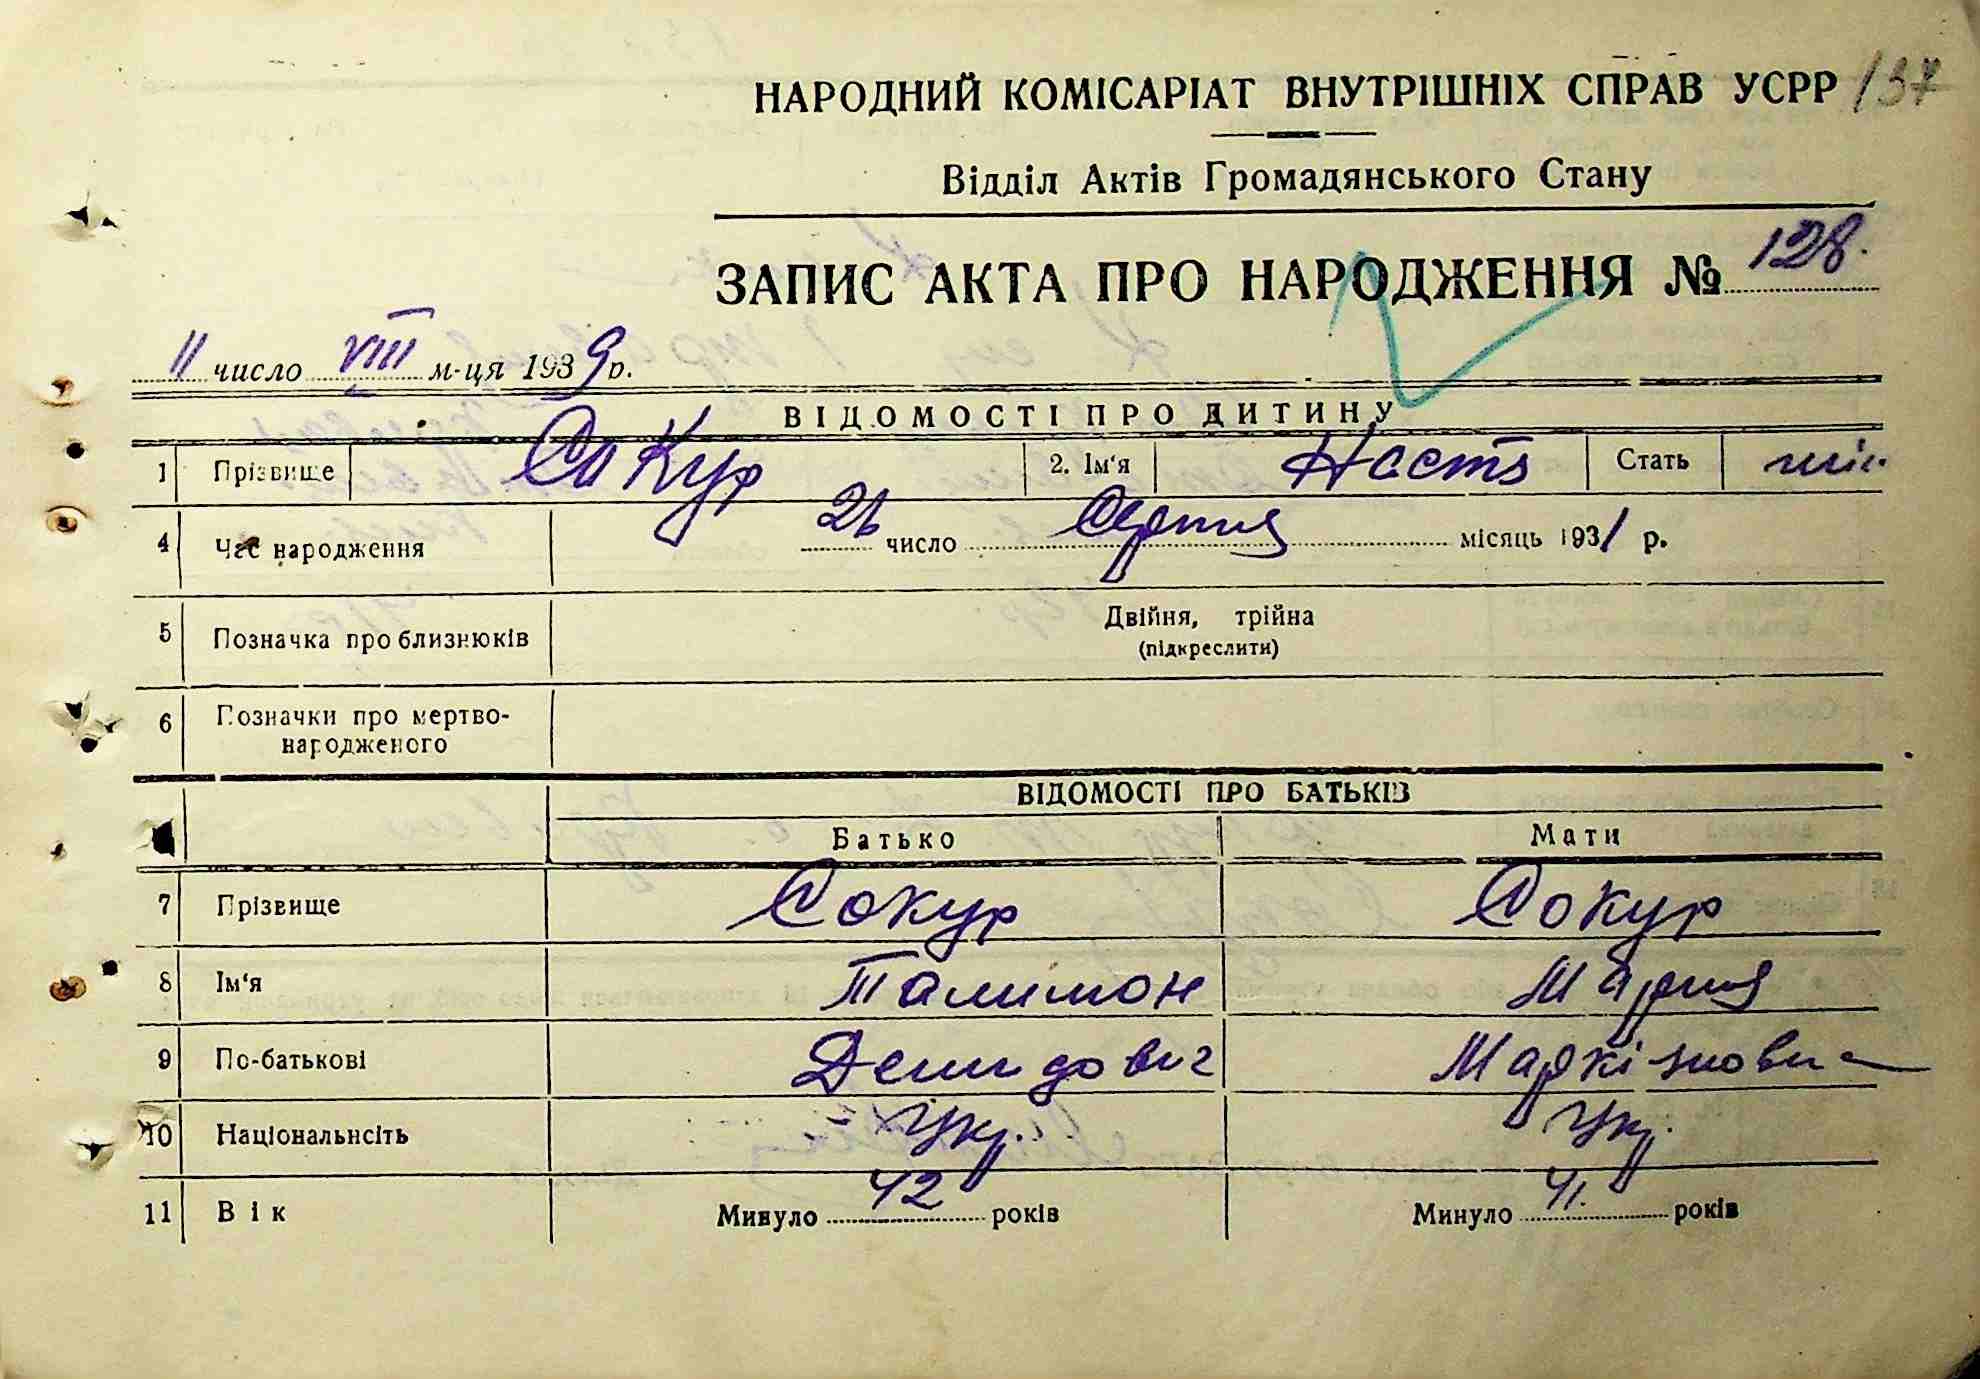 НАРОДНИЙ КОМІСАРІАТ ВНУТРІШНІХ СПРАВ УСРР 137
Відділ Актів Громадянського Стану
ЗАПИС АКТА ПРО НАРОДЖЕННЯ № 128.
11 число VIII м-ця 1939 р.
ВІДОМОСТІ ПРО ДИТИНУ
1 Прізвище Сокур 2. Ім'я Настя Стать жін.
4 Час народження 26 число Серпня місяць 1931 р.
5 Позначка про близнюків Двійня, трійна
(підкреслити)
6 Позначки про мертво-
народженого
ВІДОМОСТІ ПРО БАТЬКІВ
Батько Мати
7 Прізвище Сокур Сокур
8 Ім'я Талимон Мария
9 По-батькові Демидович
10 Національність Укр. Укр.
11 Вік Минуло 42 років Минуло 41. років